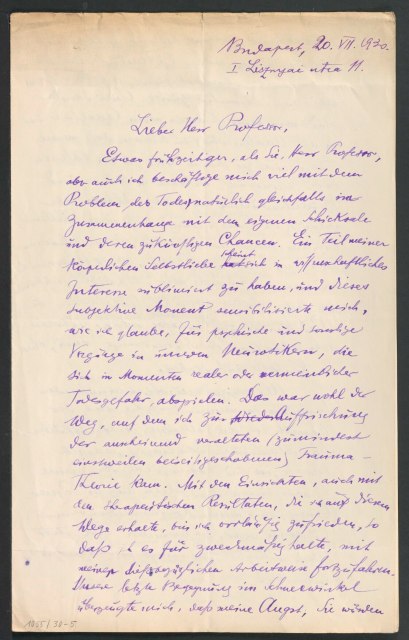 Budapest, 20. VII. 1930.
I Lisznyai utca 11.
Lieber Herr Professor,
Etwas frühzeitiger, als Sie, Herr Professor,
aber auch ich beschäftige mich viel mit dem
Problem des Todes, natürlich gleichfalls im
Zusammenhange mit dem eigenen Schicksale
und deren zukünftigen Chancen. Ein Teil meiner
körperlichen Selbstliebe scheint sich in wissenschaftliches
Interesse sublimiert zu haben, und dieses
subjektive Moment sensibilisierte mich,
wie ich glaube, für psychische und sonstige
Vorgänge in unseren Neurotikern, die
sich in Momenten realer oder vermeintlicher
Todesgefahr, abspielen. Das war wohl der
Weg, auf dem ich zur Auffrischung
der anscheinend veralteten (zumindest
einstweilen beiseitegeschobenen) Trauma-
Theorie kam. Mit den Einsichten, auch mit
den therapeutischen Resultaten, die ich auf diesem
Wege erhalte, bin ich vorläufig zufrieden, so
daß ich es für zweckmäßig halte, mit
meiner diesbezüglichen Arbeitsweise fortzufahren.
Unsere letzte Begegnung im Schneewinkel
überzeugte mich, daß meine Angst, Sie würden